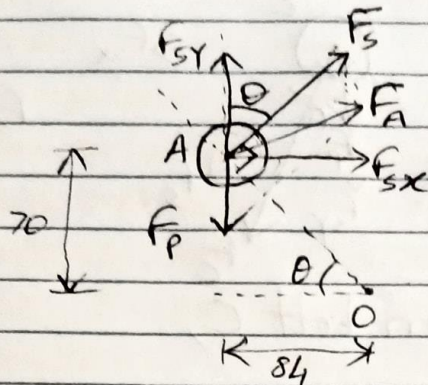 F_SY
F_S
θ
F_A
A
F_SX
70
F_P
θ
O
84